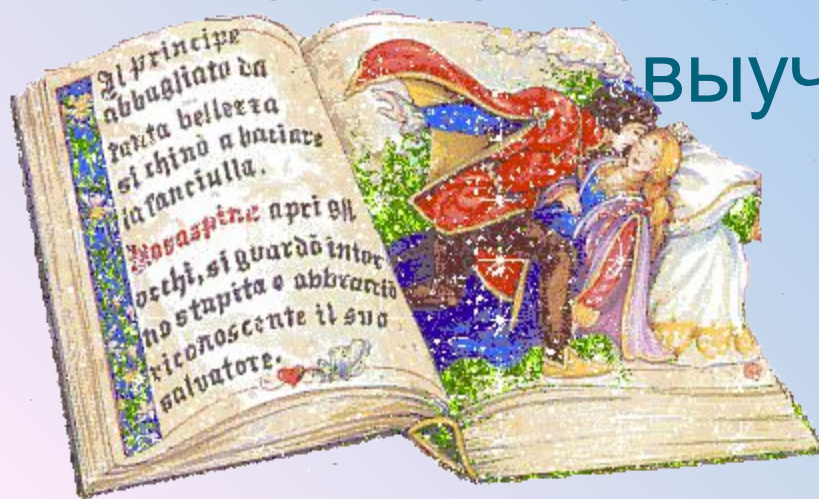 выуч
Il principe
abbagliato da
tanta bellezza
si chinò a baciare
la fanciulla.
Rosaspina aprì gli
occhi, si guardò intor
no stupita e abbracciò
riconoscente il suo
salvatore.